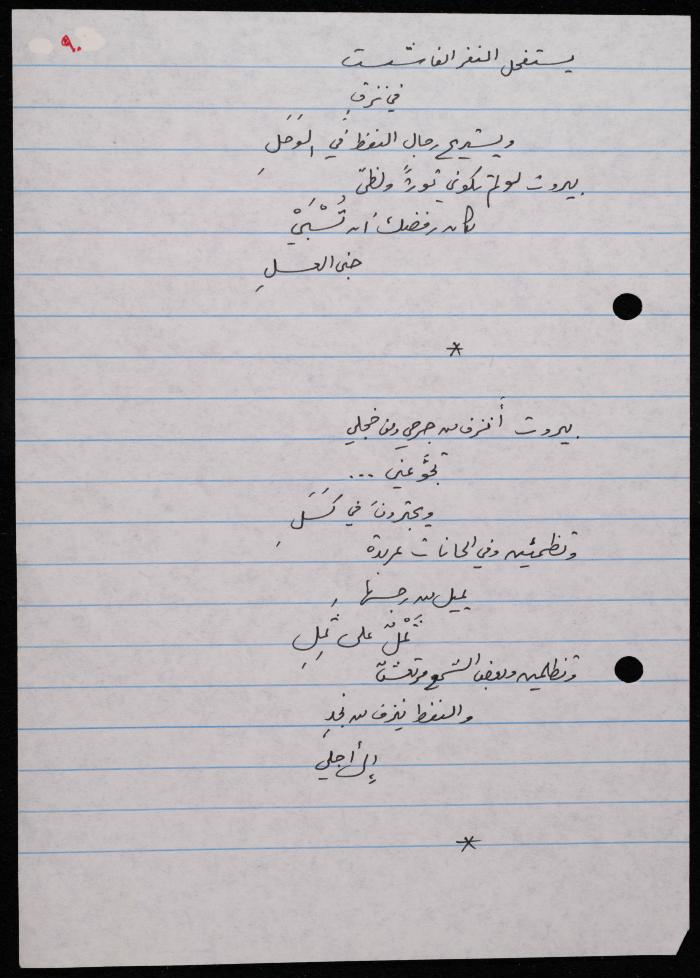 ٩٠
يستفحل النفر الفاشست
في نزقٍ
ويستريح رجال النفط في الوَحَلِ
بيروت لو لم تكوني ثورةً ولظىً
لكان رفضك أن تُسْبَيْ
جنى العسلِ
*
بيروت أنزف من جرحي ومن خجلي
تجوّعين ...
ويجترونَ في كَسَلِ
وتظمئين وفي الحانات عربدة
يميل من رجسها
ثَمْلٌ على ثَمِلِ
وتظلمين وبعض الشمع مرتعشٌ
والنفط ينزف من نجدٍ
إلى أجلِ
*